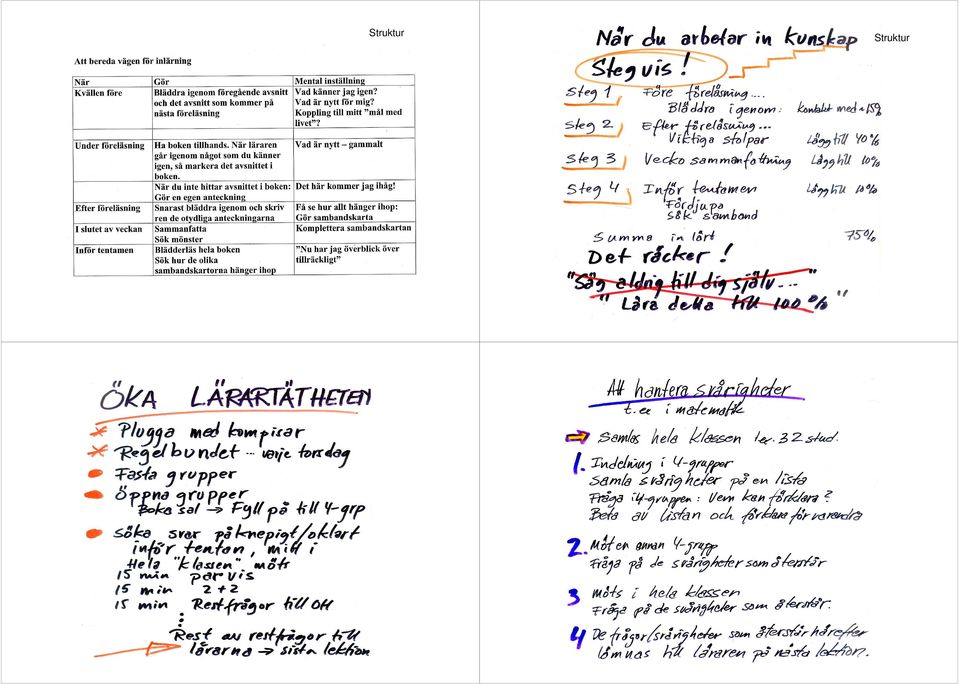 Struktur
Att bereda vägen för inlärning
När Gör Mental inställning
Kvällen före Bläddra igenom föregående avsnitt Vad känner jag igen?
och det avsnitt som kommer på Vad är nytt för mig?
nästa föreläsning Koppling till mitt ”mål med
livet”?
Under föreläsning Ha boken tillhands. När läraren Vad är nytt – gammalt
går igenom något som du känner
igen, så markera det avsnittet i
boken.
När du inte hittar avsnittet i boken: Det här kommer jag ihåg!
Gör en egen anteckning
Efter föreläsning Snarast bläddra igenom och skriv Få se hur allt hänger ihop:
ren de otydliga anteckningarna Gör sambandskarta
I slutet av veckan Sammanfatta Komplettera sambandskartan
Sök mönster
Inför tentamen Blädderläs hela boken ”Nu har jag överblick över
Sök hur de olika tillräckligt”
sambandskartorna hänger ihop
Struktur
När du arbetar in kunskap
Stegvis!
Steg 1 Före föreläsning ....
Bläddra igenom: kontakt med ~15%
Steg 2 Efter föreläsning ...
Viktiga stolpar Lägg till 40%
Steg 3 Vecko sammanfattning Lägg till 10%
Steg 4 Inför tentamen Lägg till 10%
Fördjupa
Sök samband
Summa in lärt 75%
Det räcker!
"Säg aldrig till dig själv ---"
"Lära detta till 100%"
ÖKA LÄRARTÄTHETEN
Plugga med kompisar
Regelbundet ... varje torsdag
Fasta grupper
Öppna grupper
Boka sal → Fyll på till 4-grp
Söka svar på knepigt/oklart
inför tentan, mitt i
Hela "klassen" möts
15 min parvis
15 min 2+2
15 min Restfrågor till OH
Rest av restfrågor till
lärarna → sista lektion
Att hantera svårigheter
t.ex i matematik
Samlas hela klassen t.ex. 32 stud.
1. Indelning i 4-grupper
Samla svårigheter på en lista
Fråga i 4-gruppen: Vem kan förklara?
Beta av listan och förklara för varandra
2. Möt en annan 4-grupp
Fråga på de svårigheter som återstår
3 Möts i hela klassen
Fråga på de svårigheter som återstår.
4 De frågor/svårigheter som återstår härefter
lämnas till läraren på nästa lektion.